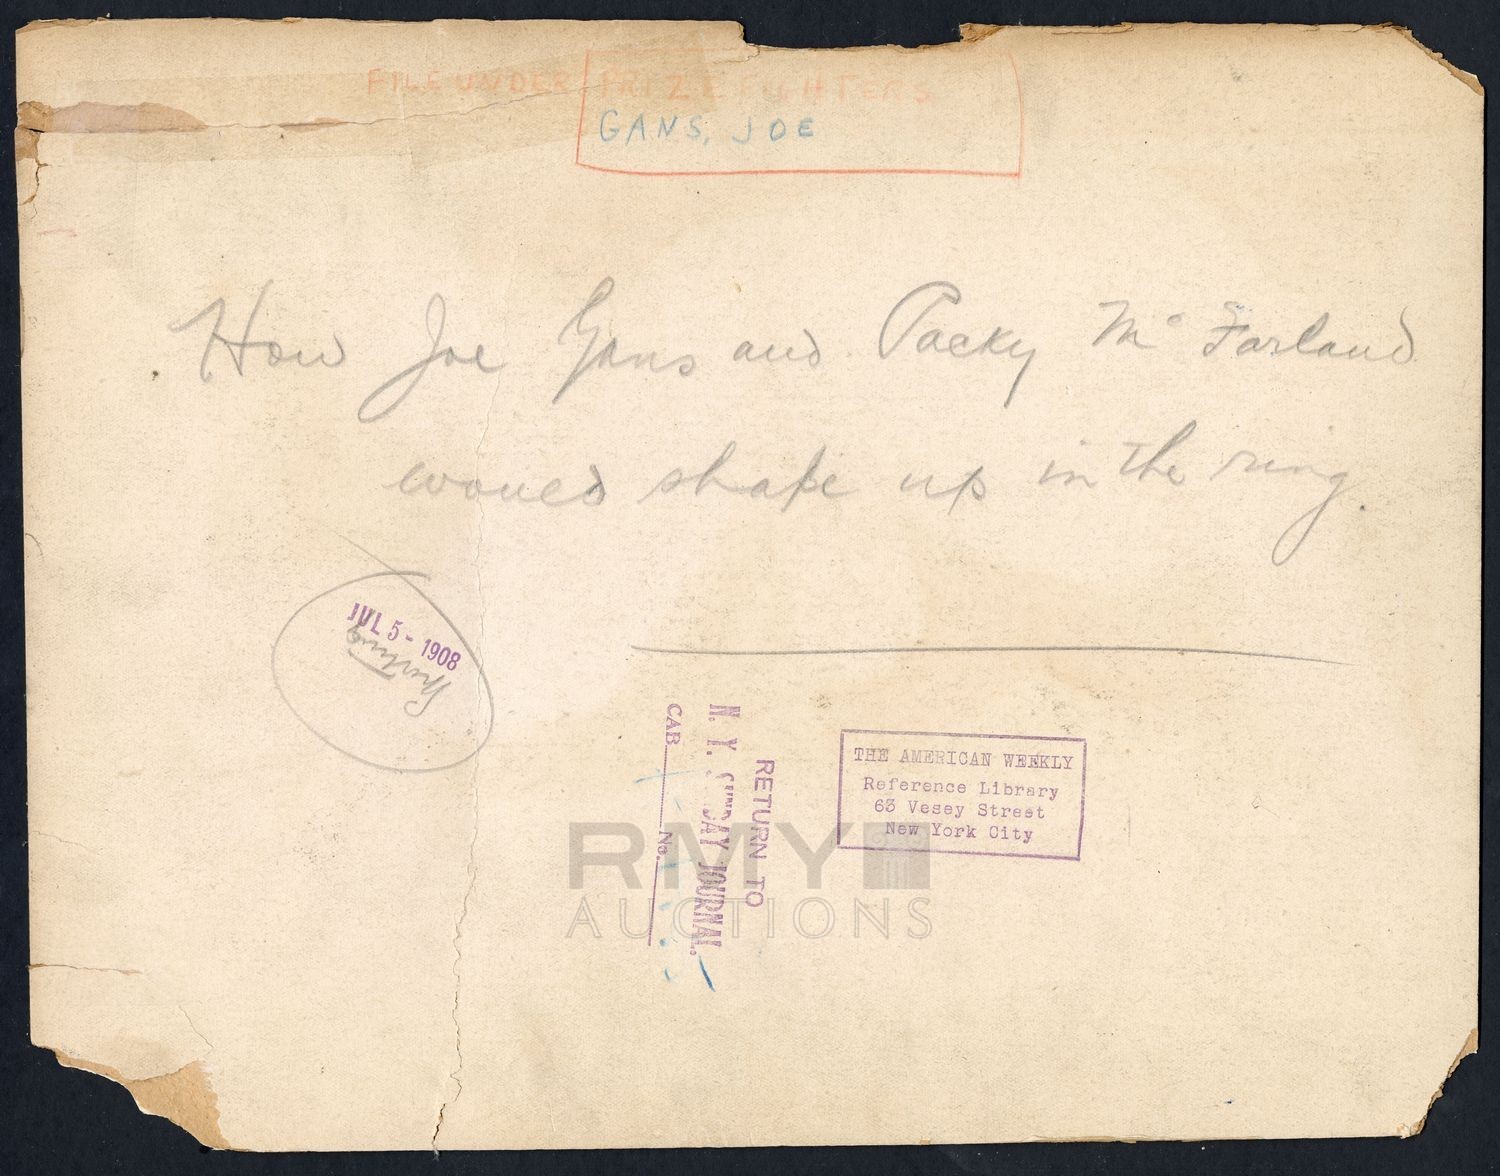 FILE UNDER PRIZE FIGHTERS
GANS, JOE
How Joe Gans and Packy Mc Farland
would shape up in the ring.
JUL 5 - 1908
Sporting
RETURN TO
N. Y. SUNDAY JOURNAL.
CAB. No.
THE AMERICAN WEEKLY
Reference Library
63 Vesey Street
New York City
RMY
AUCTIONS